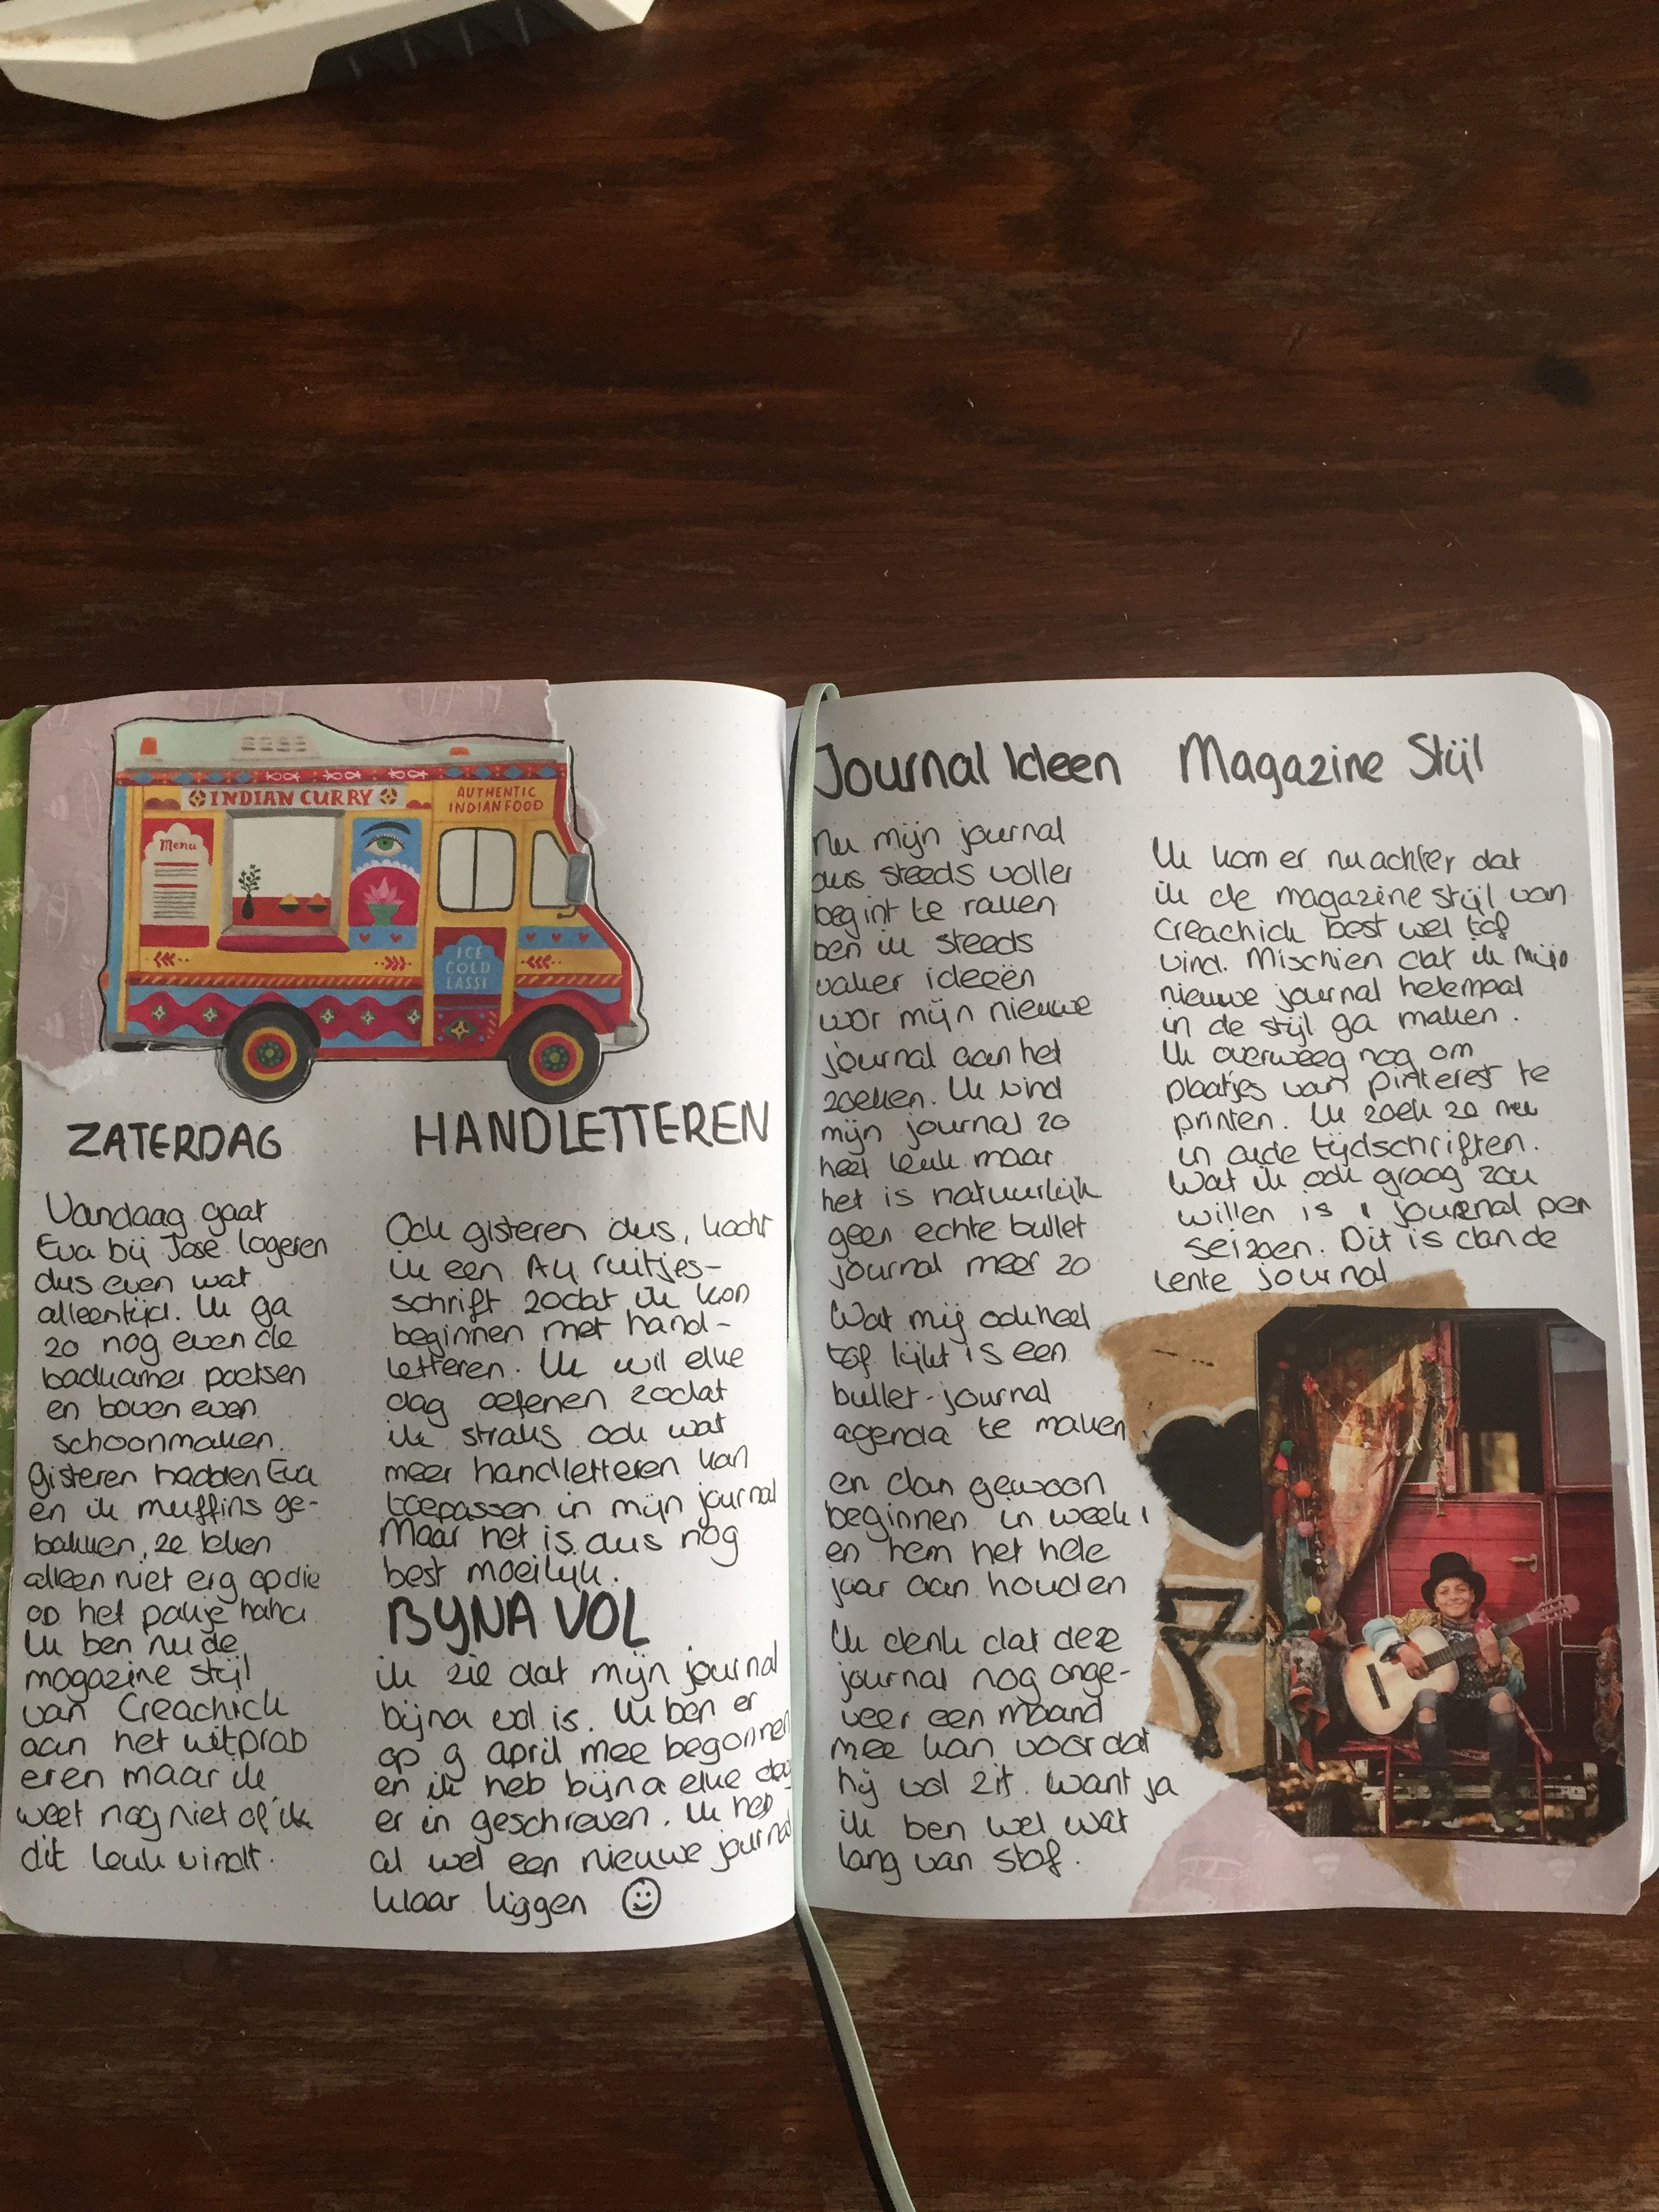 INDIAN CURRY
AUTHENTIC
INDIAN FOOD
Menu
ICE
COLD
LASSI
ZATERDAG
Vandaag gaat
Eva bij José logeren
dus even wat
alleentijd. Ik ga
zo nog even de
badkamer poetsen
en boven even
schoonmaken.
Gisteren hadden Eva
en ik muffins ge-
bakken, ze leken
alleen niet erg op die
op het pakje haha
Ik ben nu de
magazine stijl
van Creachick
aan het uitprob
eren maar ik
weet nog niet of ik
dit leuk vindt.
HANDLETTEREN
Ook gisteren dus, kocht
ik een A4 ruitjes-
schrift zodat ik kon
beginnen met hand-
letteren. Ik wil elke
dag oefenen zodat
ik straks ook wat
meer handletteren kan
toepassen in mijn journal
Maar het is dus nog
best moeilijk.
BIJNA VOL
ik zie dat mijn journal
bijna vol is. Ik ben er
op 9 april mee begonnen
en ik heb bijna elke dag
er in geschreven. Ik heb
al wel een nieuwe journal
klaar liggen
Journal Ideen
Nu mijn journal
dus steeds voller
begint te raken
ben ik steeds
vaker ideeën
voor mijn nieuwe
journal aan het
zoeken. Ik vind
mijn journal zo
heel leuk maar
het is natuurlijk
geen echte bullet
journal meer zo
Wat mij ook heel
tof lijkt is een
bullet-journal
agenda te maken.
en dan gewoon
beginnen in week 1
en hem het hele
jaar aan houden
Ik denk dat deze
journal nog onge-
veer een maand
mee kan voordat
hij vol zit. Want ja
ik ben wel wat
lang van stof.
Magazine Stijl
Ik kom er nu achter dat
ik de magazine stijl van
Creachick best wel tof
vind. Mischien dat ik mijn
nieuwe journal helemaal
in de stijl ga maken.
Ik overweeg nog om
plaatjes van pinterest te
printen. Ik zoek zo nu
in oude tijdschriften.
Wat ik ook graag zou
willen is 1 journal per
seizoen. Dit is dan de
lente journal